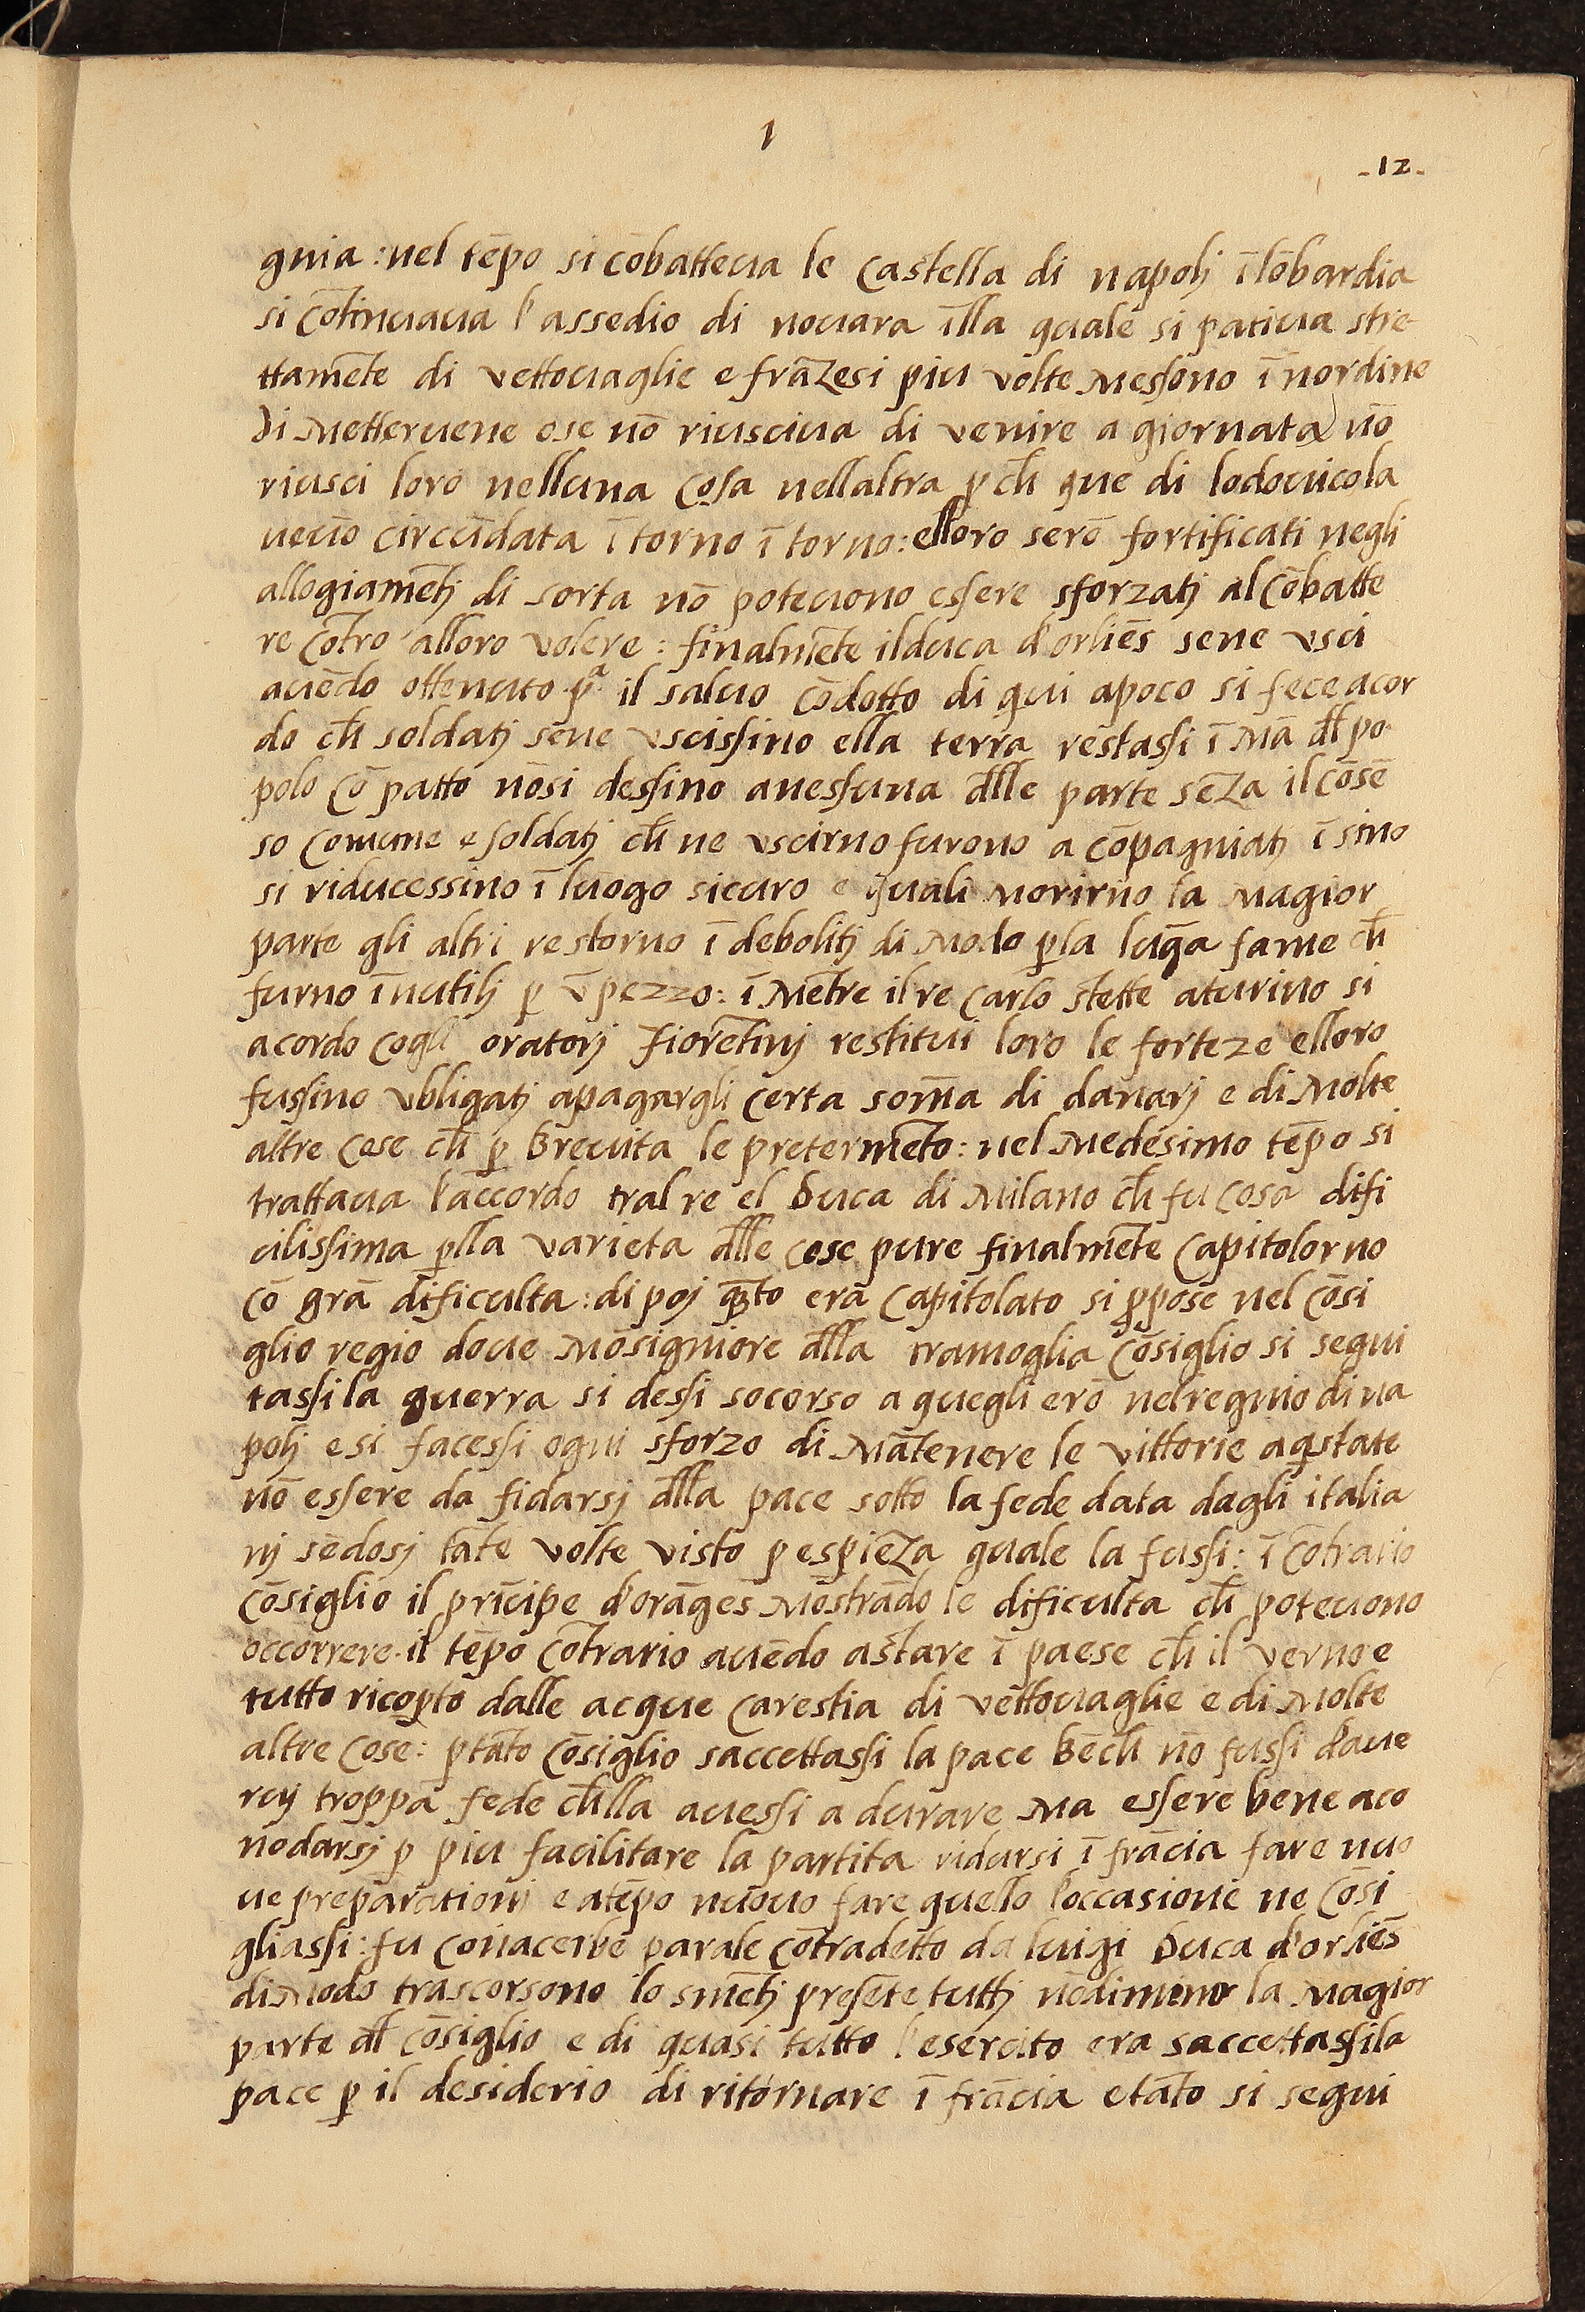 1
-12-
gnia: nel tēpo si cōbatteua le castella di napolj ī lōbardia
si cōtinuaua l'assedio di nouara īlla quale si patiua stre-
ttamēte di vettouaglie e frāzesi piu volte messono ī nordine
di metteruene ose nō riusciua di venire a giornata nō
riusci loro nelluna cosa nellaltra p̄ ch̄ gue di lodouicola
ueuō circūdata ī torno ī torno: elloro serō fortificati negli
allogiamētj di sorta nō poteuono essere sforzatj al cōbatte
re cōtro alloro volere: finalmēte il duca d'orliēs sene vsci
auēdo ottenuto pª il saluo cōdotto di qui apoco si fece acor
do ch̄ soldatj sene vscissino ella terra restassi ī mā dl̄ po-
polo cō patto nōsi dessino anessuna dl̄le parte sēza il cōsē
so comune e soldatj ch̄ ne vscirno furono a cōpagniatj ī sino
si riducessino ī luogo sicuro e quali morirno la magior
parte gli altri restorno ī debolitj di modo p̄la lūga fame ch̄
furno īnutilj p̄ ūpezzo: ī mētre il re carlo stette aturino si
acordo cogli oratorj fiorētinj restitui loro le forteze elloro
fussino vbligatj apagargli certa som̄a di danarj e di molte
altre cose ch̄ p̄ breuita le pretermēto: nel medesimo tēpo si
trattaua l'accordo tral re el duca di milano ch̄ fu cosa difi
cilissima p̄lla varieta dl̄le cose pure finalmēte capitolorno
cō grā dificulta: di poj q̄to era capitolato si p̄pose nel cōsi
glio regio doue mōsigniore dl̄la tramoglia cōsiglio si segui
tassi la guerra si dessi socorso a quegli erō nelregnio di na
polj e si facessi ogni sforzo di mātenere le vittorie aq̄state
nō essere da fidarsj dl̄la pace sotto la fede data dagli italia
nj sēdosj tāte volte visto p espiēza quale la fussi: ī cōtrario
cōsiglio il prīcipe d'orāges mōstrādo le dificulta ch̄ poteuono
occorrere. il tēpo cōtrario auēdo astare ī paese ch̄ il verno e
tutto ricop̄to dalle acque carestia di vettouaglie e di molte
altre cose: p̄tāto cōsiglio saccettassi la pace bēch̄ nō fussi d'aue
ruj troppa fede ch̄lla auessi a durare ma essere bene aco
modarsj p̄ piu facilitare la partita ridursi ī frācia fare nuo
ue preparationj e atēpo nuouo fare quello l'occasione ne cōsi
gliassi: fu conacerbe parale cōtradetto da luigi duca d'orliēs
di modo trascorsono īo smētj presēte tuttj nōdimeno la magior
parte dl̄ cōsiglio e di quasi tutto l'esercito era saccettassila
pace p̄ il desiderio di ritornare ī frācia etāto si segui